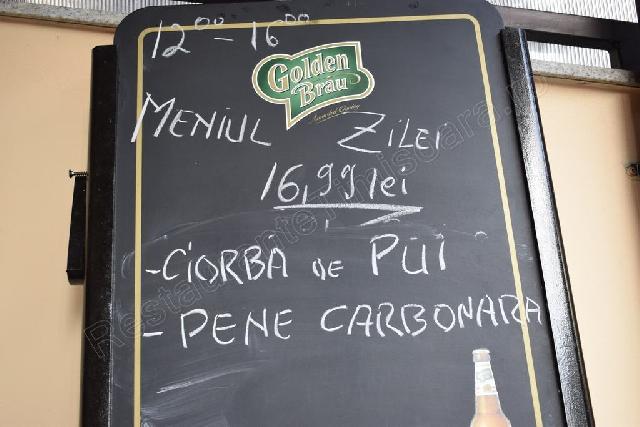 12 00 - 16 00
Golden
Bräu
MENIUL ZILEI
16,99 lei
-CIORBĂ DE PUI
- PENE CARBONARA
RestauranteTimisoara.ro